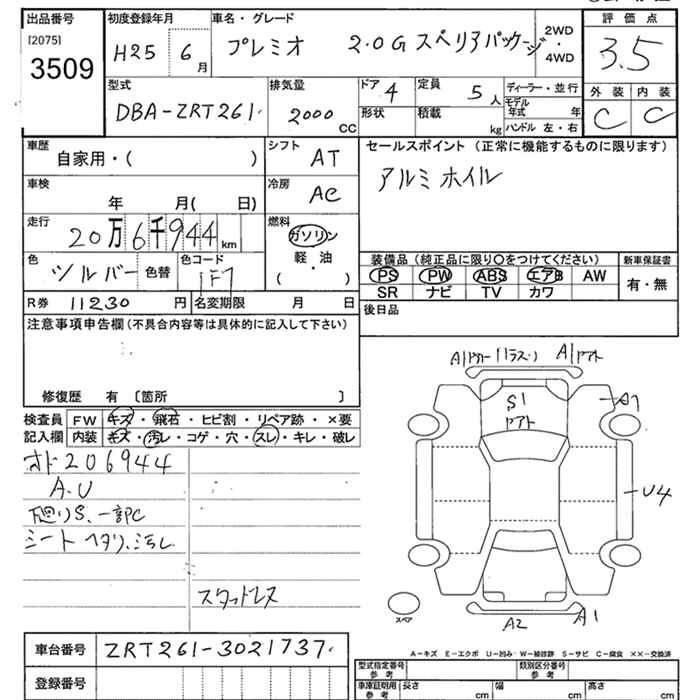 出品番号 初度登録年月 車名・グレード 評価点
[2075]
3509 H25 6月 プレミオ 2.0G スペリアパッケージ 2WD・4WD 3.5
型式 排気量 ドア 4 定員 5人 ディーラー・並行 外装 内装
DBA-ZRT261 2000cc 形状 積載 kg モデル年式 年 ハンドル 左・右 C C
車歴 自家用・( ) シフト AT セールスポイント (正常に機能するものに限ります)
車検 年 月( 日) 冷房 AC アルミホイル
走行 20万6千944km 燃料 ガソリン・軽油 ( )
色 シルバー 色替 色コード 1F7 装備品 (純正品に限り○をつけてください) 新車保証書
PS PW ABS エアB AW 有・無
R券 11230円 名変期限 月 日 SR ナビ TV カワ
注意事項申告欄 (不具合内容等は具体的に記入して下さい) 後日品
修復歴 有 〔箇所 〕
検査員 FW キズ・飛石・ヒビ割・リペア跡・×要
記入欄 内装 キズ・汚レ・コゲ・穴・スレ・キレ・破レ
オド206944
A.U
廻りS、一部C
シートヘタリ、汚レ
スタッドレス
S1
U4
スペア
A2 A1
車台番号 ZRT261-3021737
登録番号
A-キズ E-エクボ U-凹み W-補修跡 S-サビ C-腐食 ××-交換済
型式指定番号 参考 類別区分番号 参考
車庫証明用 参考 長さ cm 幅 cm 高さ cm